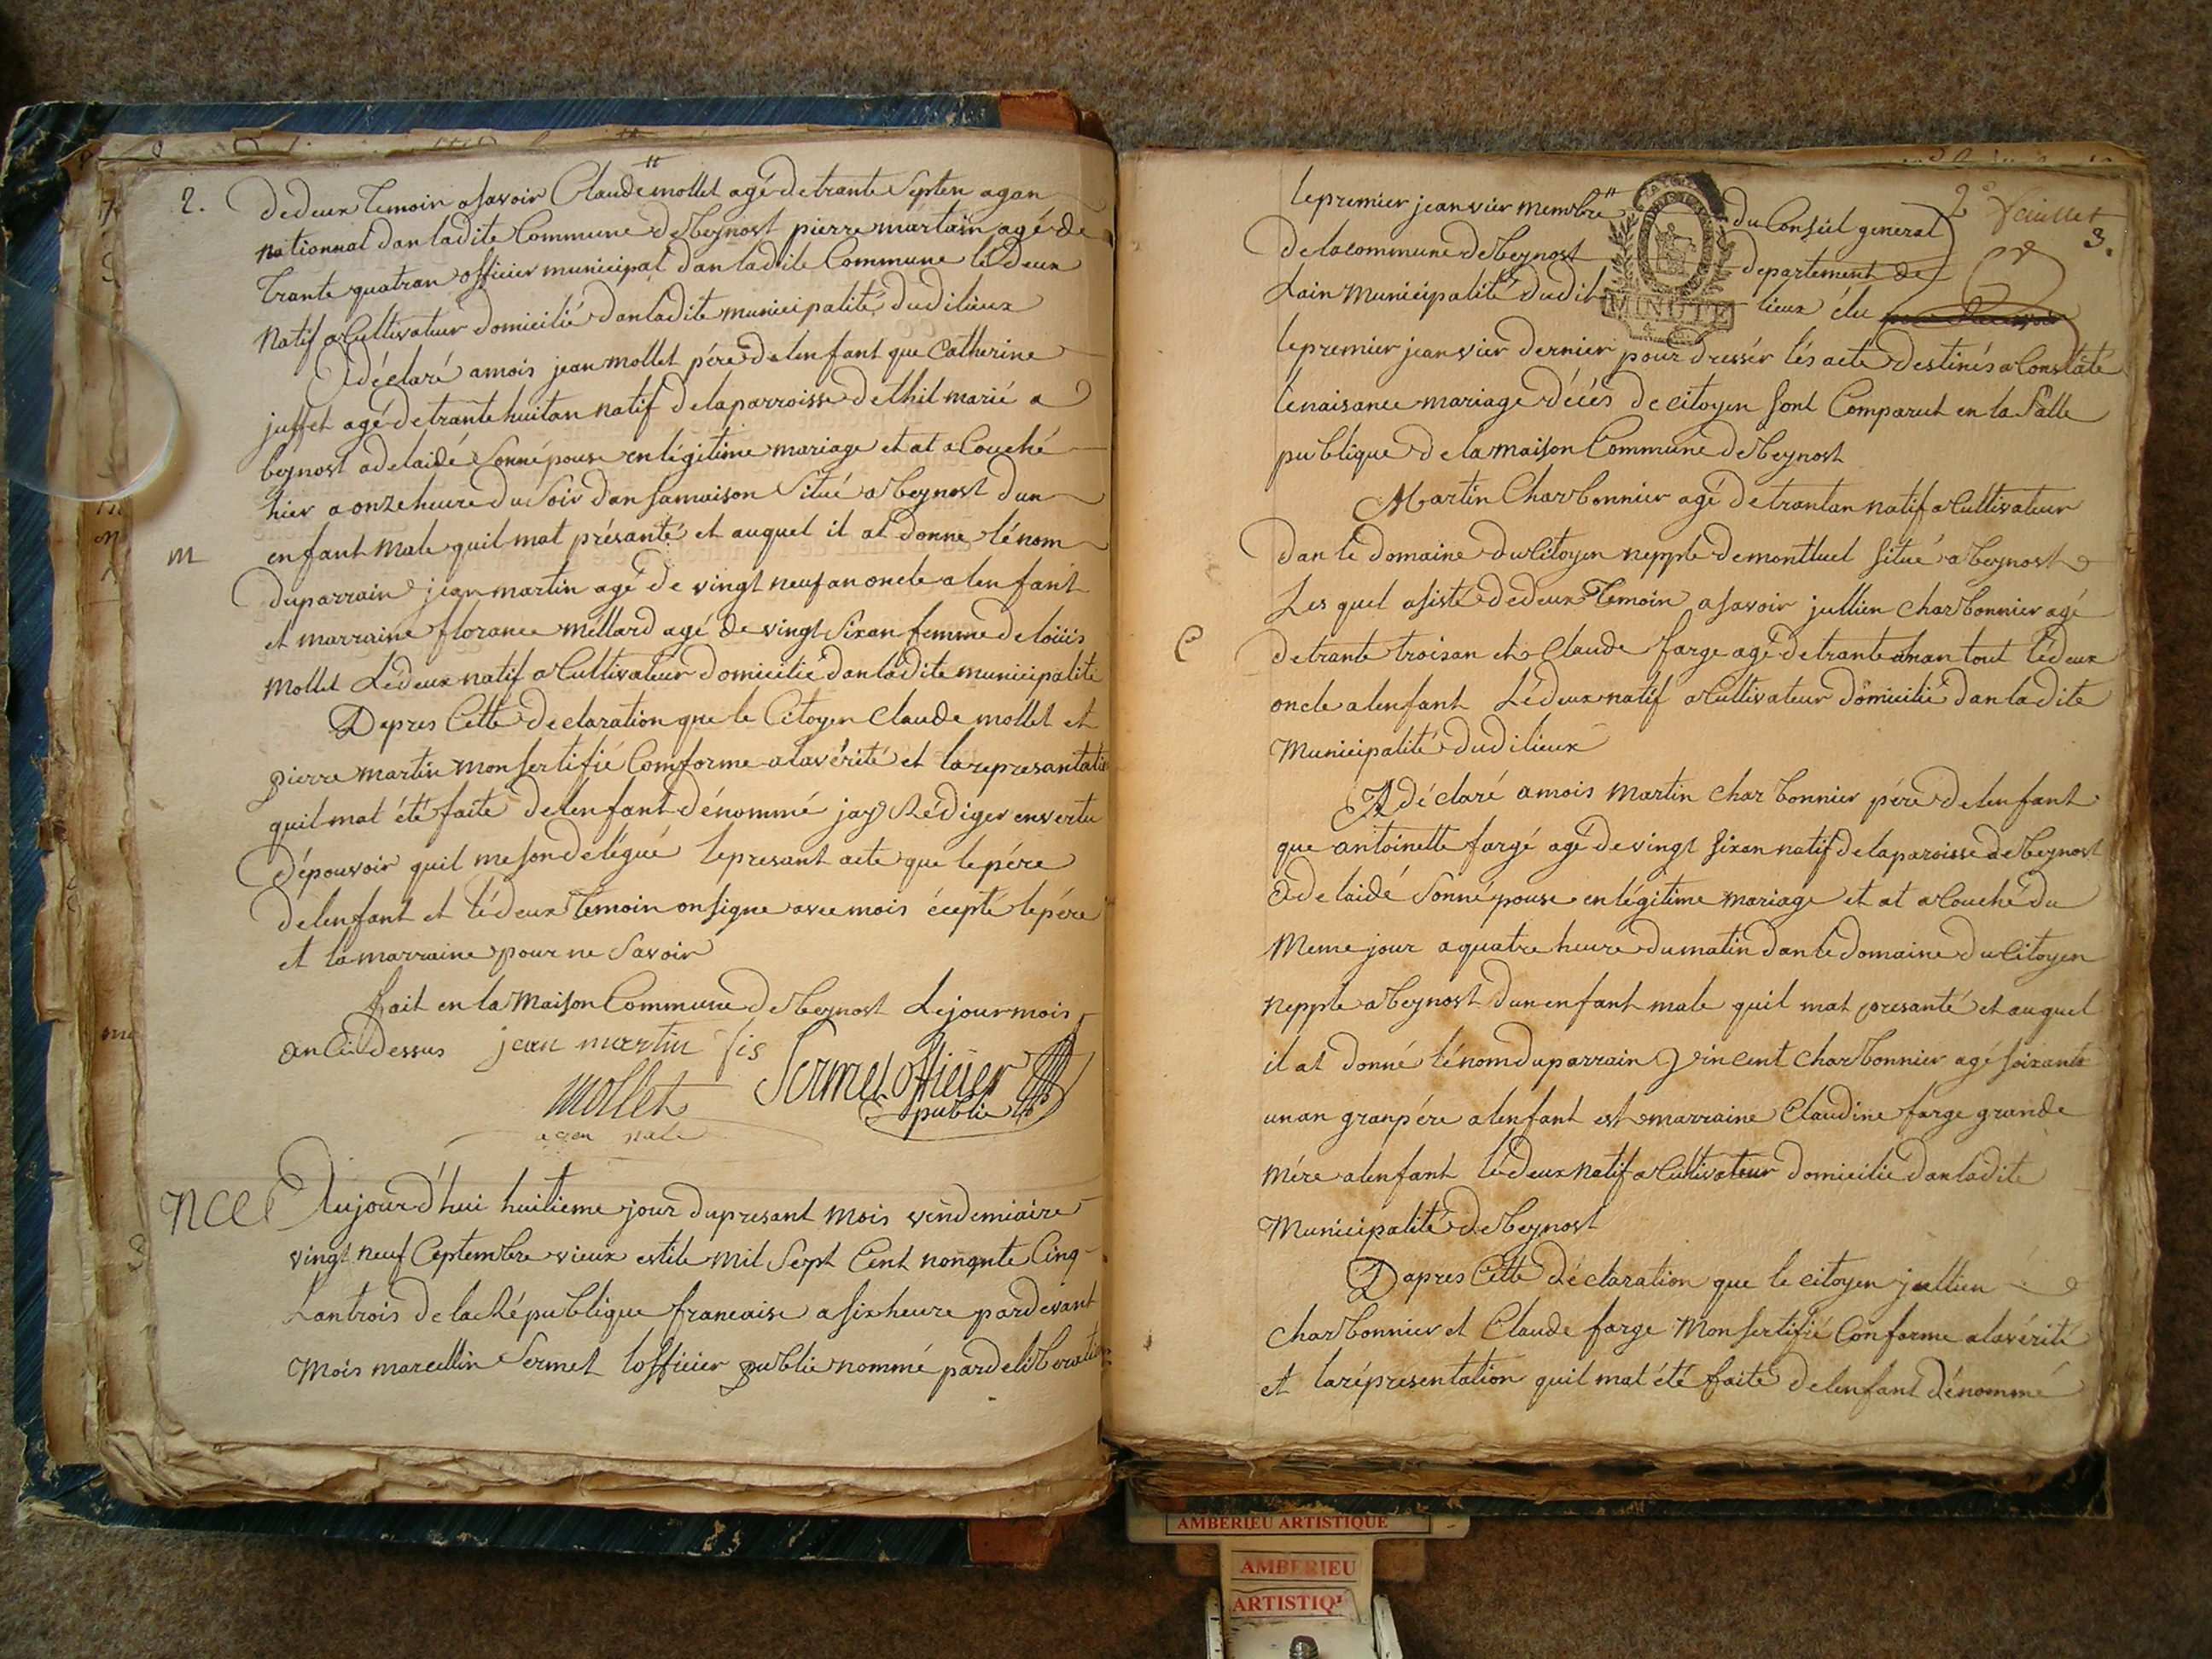 2.
dedeux temoin asavoir Claude mollet agé detrante Septen agan
nationnal danladite Commune deBeynost pierre martain agé de
Trante quatran officier municipal danladite Commune lédeux
Natif a Cultivateur domicilié danladite municipalité dudilieux
A déclaré amois jean mollet pére delenfant que Catherine
juffet agé detrante huitan natif delaparroisse dethil marié a
beynost adelaidé Sonnépouse enlégitime mariage et at acouché
hier a onze heure du Soir dan samaison Situé aBeynost dun
m
enfant male quil mat présanté et auquel il at donne lénom
duparrain jean martin agé de vingt neuf an oncle alenfant
et marraine florance mellard agé de vingt Sixan femme deloüis
Mollet Lédeux natif a Cultivateur domicilié danladite municipalité
Dapres Cette declaration que le Citoyen Claude mollet et
pierre martin mon Sertifié Comforme alavérité et larepresantatio
quil mat été faite delenfant dénommé jay Rédiger envertu
dépouvoir quil meson delégué lepresant acte que lepére
delenfant et lédeux temoin onsigne avec mois écepté lepére
et lamarraine pour ne Savoir
fait en la Maison Commune deBeynost Lejour mois
an Cidessus jean martin fis
Sermet officier
public
Mollet
agen nale
nce
Aujourd'hui huitieme jour dupresant Mois vendemiaire
vingt neuf Ceptembre vieux estile Mil Sept Cent nonante Cinq
Lantrois de la République francaise a Sixheure pardevant
Mois marcellin Sermet lofficier public nommé pardeliberation
2e feuillet
3.
lepremier jeanvier membre du Conseil general
delacommune deBeynost departement de
Lain Municipalité dudit lieux élu
MINUTE
lepremier jeanvier dernier pour dressér lés acte destinés a Constaté
lenaisance mariage décés de citoyen Sont Comparut en la Salle
publique de la maison Commune deBeynost
Martin Charbonnier agé detrantan natif a Cultivateur
Dan le domaine du Citoyen nepple demontluel Situé a Beynost
Les quel asisté dedeux Temoin asavoir jullien charbonnier agé
C
detrante troixan et Claude farge agé detrante unan tout lédeux
oncle alenfant Lédeux natif a Cultivateur domicilié danladite
Municipalité dudilieux
A déclaré amois Martin charbonnier pére delenfant
que antoinette fargé agé devingt Sixan natif delaparoisse deBeynost
adelaidé Sonnépouse enlégitime mariage et at acouché du
Meme jour aquatre heure dumatin danledomaine du Citoyen
nepple aBeynost dunenfant male quil mat presanté et auquel
il at donné lénomduparrain vincent charbonnier agé Soixante
unan granpére alenfant est marraine Claudine farge grande
Mére alenfant lédeux natif a Cultivateur domicilié danladite
Municipalité deBeynost
Dapres Cette déclaration que le citoyen jullien
charbonnier et Claude farge Mon Sertifié Conforme alavérité
et laréprésentation quil mat été faite delenfant dénommé
AMBERIEU ARTISTIQUE
AMBERIEU
ARTISTIQ